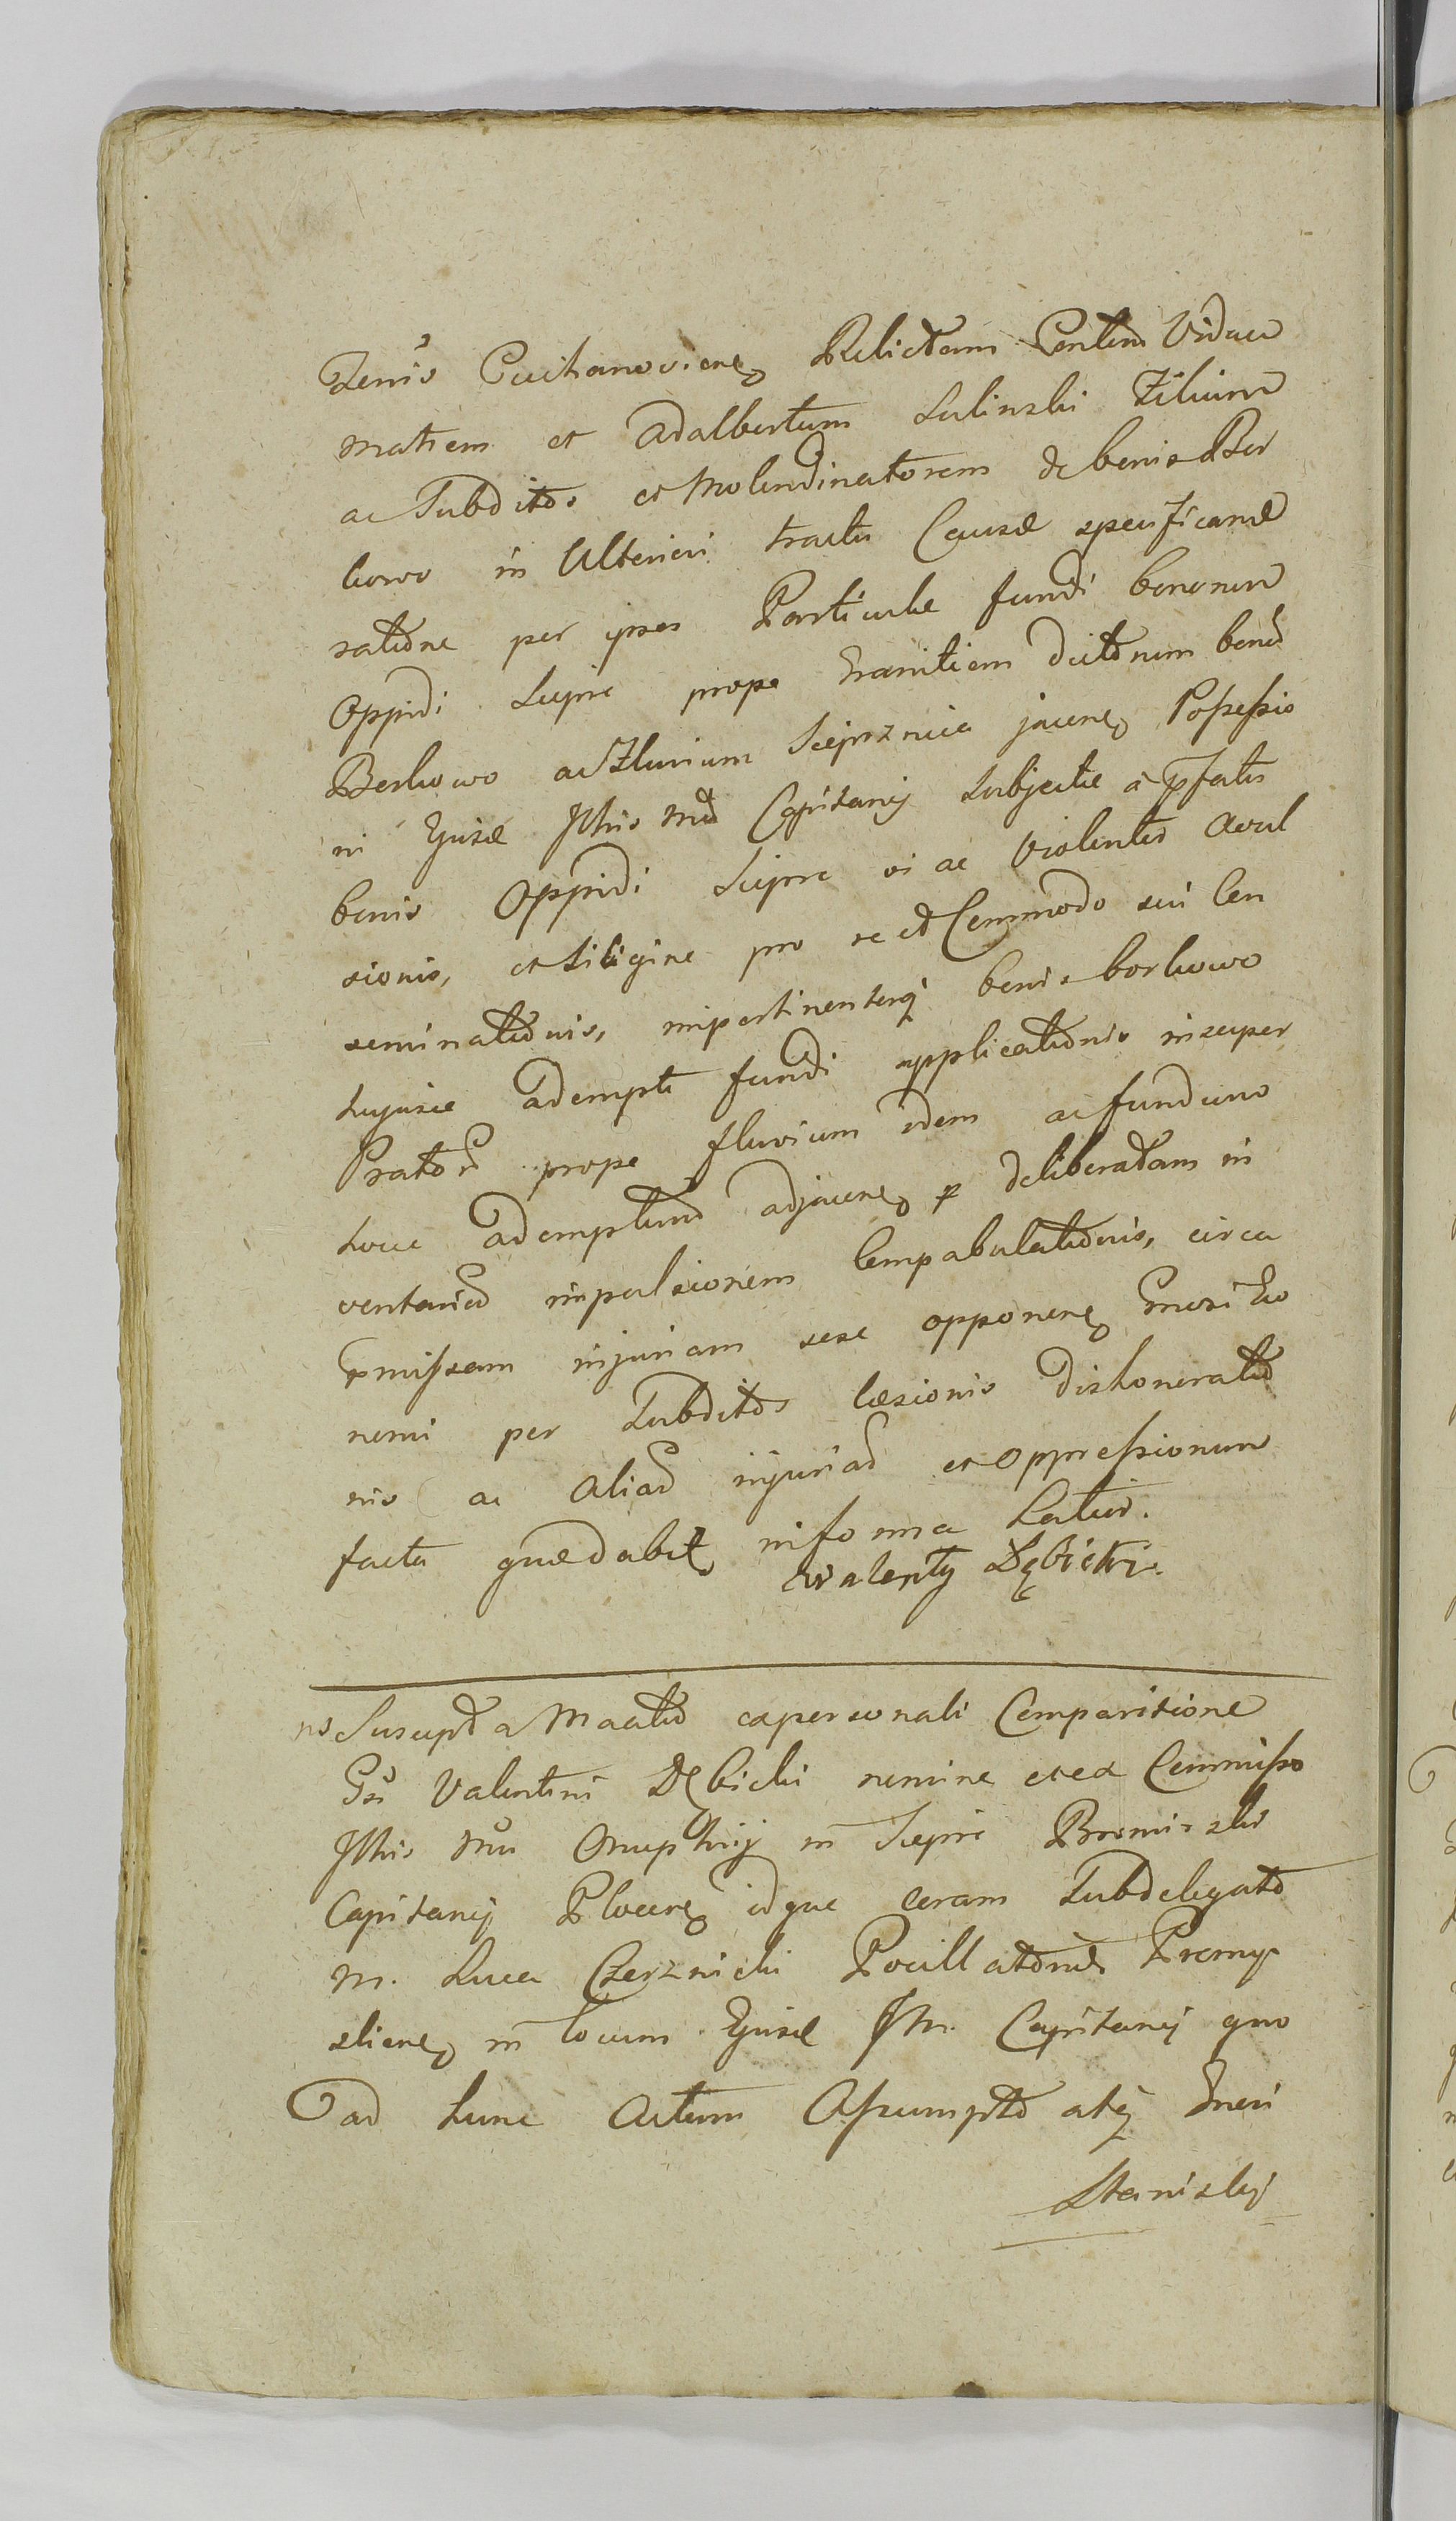 Tenis Ciechanoviens Relictam Contem Viduam
Matrem et Adalbertum Sulinski Filium
ac Subditos et Molendinatorem de bonis Bor
kowo in Ulteriori tractu Causæ specificand
ratione per ipsos Particulæ fundi bonorum
Oppidi Sieprc prope Granitiem dictorum bonor
Borkowo ac Fluvium Sieprznica jacens Possessio
ni Ejusd Ill̃ris Mḋ Capitanij Subjectæ a p̃fatis
bonis Oppidi Sieprc vi ac Violenter Avul
sionis, et Siligine pro se et Commodo sui Con
seminationis, impertinenterq bonis borkowo
hujusce adempti fundi applicationis insuper
Pratorũ prope fluvium idem ac fundum
hocce Ademptum adjacens p deliberatam in
ventariorũ impulsionem Compabulationis, circa
p̃missam injuriam sese opponens Gnosi Eco
nomi per Subditos læsionis dishoneratio
nis ac Aliarũ injuriarũ et Oppressionum
facta quædabit in forma Latiori.
Walenty Dębicki.
Suscepta Mãtio ex personali Comparitione
Gsi Valentini Dębicki nomine et ex Commisso
Ill̃ris Mḋ Onuphrij in Sieprc Bromirski
Capitanij Plocens idque coram Subdelegato
M. Luca Czerznicki Pocillatoride Przemy
sliens in locum Ejusd Ill. Capitanij quo
ad hunc Actum Assumpto atq̃ Gnosi
Stanislai